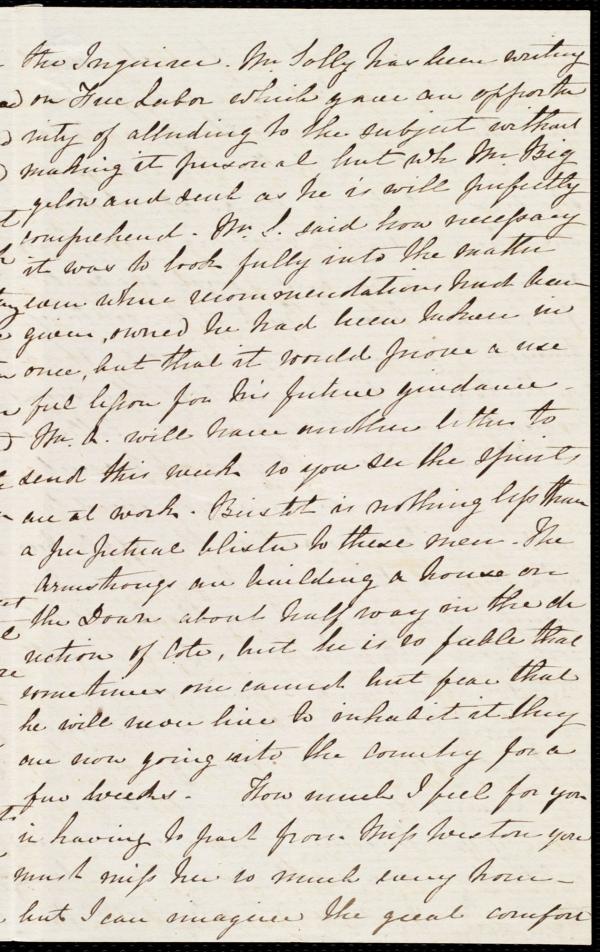 the Inquirer. Mr Solly has been writing
on Free Labor which gave an opportu
nity of alluding to the subject without
making it personal but wh Mr. Big
gelow and such as he is will perfectly
comprehend. Mr. S. said how necessary
it was to look fully into the matter
even where recommendations had been
given, owned he had been taken in
once, but that it would prove a use
ful lesson for his future guidance -
Mr. A. will have another letter to
send this week so you see the spirits
are at work. Bristol is nothing less than
a perpetual blister to these men - The
Armstrongs are building a house on
the Down about half way in the di
rection of Cote, but he is so feeble that
sometimes one cannot but fear that
he will never live to inhabit it they
are now going into the country for a
few weeks - How much I feel for you
in having to part from Miss Weston you
must miss her so much every hour -
but I can imagine the great comfort